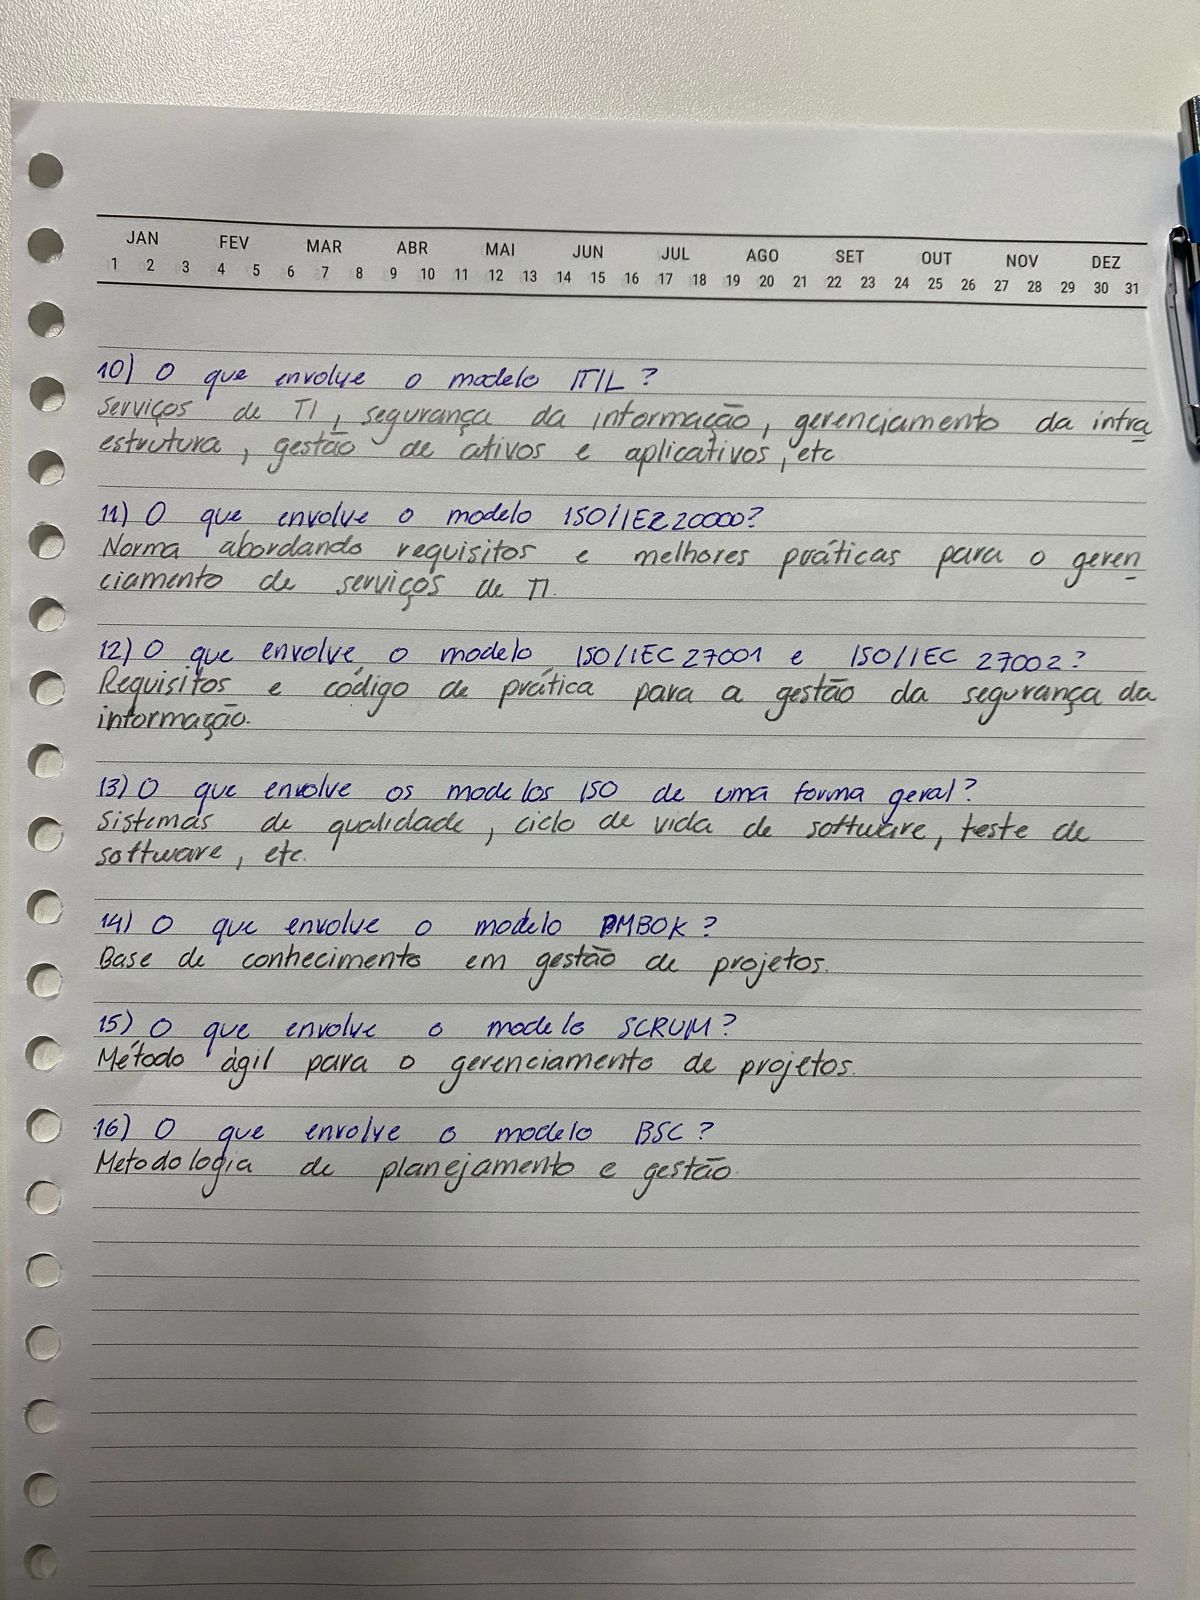 JAN FEV MAR ABR MAI JUN JUL AGO SET OUT NOV DEZ
1 2 3 4 5 6 7 8 9 10 11 12 13 14 15 16 17 18 19 20 21 22 23 24 25 26 27 28 29 30 31
10) O que envolve o modelo ITIL?
Serviços de TI, segurança da informação, gerenciamento da infra
estrutura, gestão de ativos e aplicativos, etc
11) O que envolve o modelo ISO/IEC 20000?
Norma abordando requisitos e melhores práticas para o geren
ciamento de serviços de TI.
12) O que envolve o modelo ISO/IEC 27001 e ISO/IEC 27002?
Requisitos e código de prática para a gestão da segurança da
informação.
13) O que envolve os modelos ISO de uma forma geral?
Sistemas de qualidade, ciclo de vida de software, teste de
software, etc.
14) O que envolve o modelo PMBOK?
Base de conhecimento em gestão de projetos.
15) O que envolve o modelo SCRUM?
Método ágil para o gerenciamento de projetos.
16) O que envolve o modelo BSC?
Metodologia de planejamento e gestão.